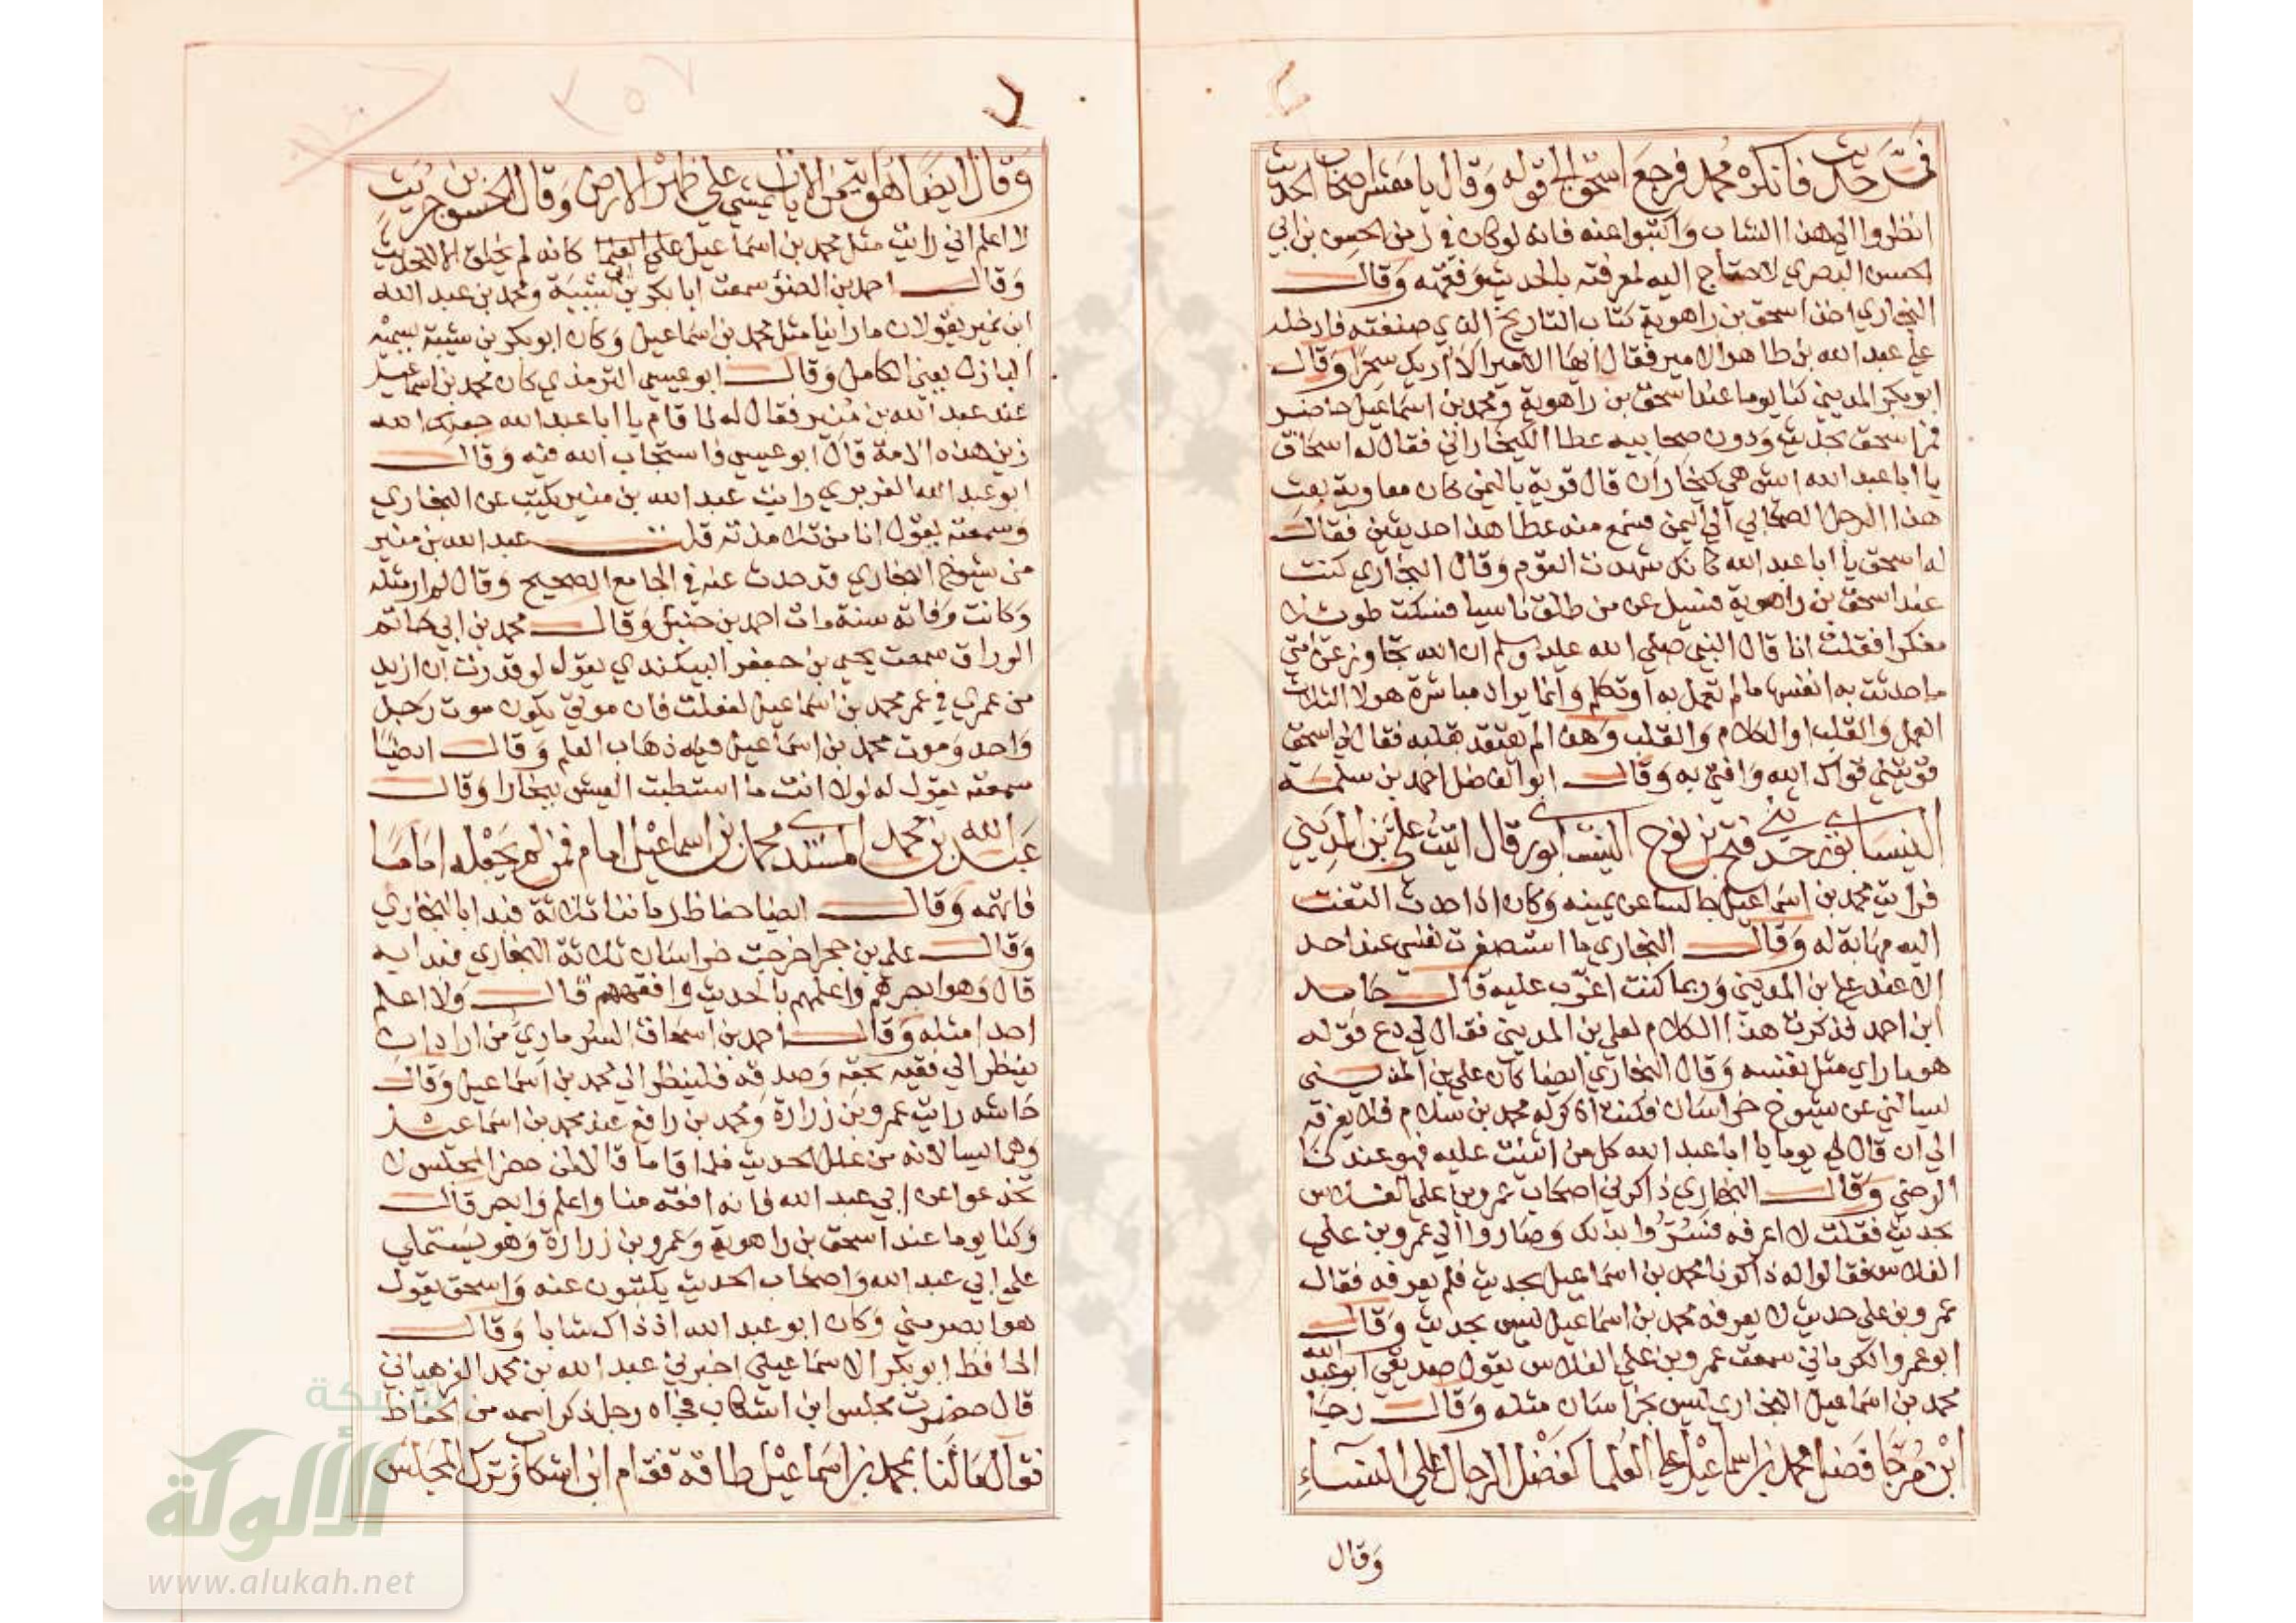 في حديث فانكره محمد فرجع اسحق الى قوله وقال يا معشر اصحاب الحديث
انظروا الي هذا الشاب واكتبوا عنه فانه لو كان في زمن الحسن بن ابي
الحسن البصري لاحتاج اليه لمعرفته بالحديث وفقهه وقال
البخاري اخذ اسحق بن راهوية كتاب التاريخ الذي صنفته فادخله
علي عبد الله بن طاهر الامير فقال ايها الامير الا اريك سحرا وقال
ابو بكر المديني كنا يوما عند اسحق بن راهوية ومحمد بن اسماعيل حاضر
فمر اسحق بحديث ودون صحابيه عطا الكيخاراني فقال له اسحاق
يا ابا عبد الله ايش هي كيخاران قال قرية باليمن كان معاوية بعث
هذا الرجل الصحابي الي اليمن فسمع منه عطا هذا حديثين فقال
له اسحق يا ابا عبد الله كانك شهدت القوم وقال البخاري كنت
عند اسحق بن راهوية فسيل عن من طلق ناسيا فسكت طويلا
مفكرا فقلت انا قال النبي صلي الله عليه وسلم ان الله تجاوز عن امتي
ما حدثت به انفسها ما لم تعمل به او تكلم وانما يراد مباشرة هولا الثلاث
العمل والقلب او الكلام والقلب وهذا لم يعتقد بقلبه فقال لي اسحق
قويتني قواك الله وافتي به وقال ابو الفضل احمد بن سلمة
النيسابوري حدثني فتح بن نوح النيسابوري قال اتيت علي بن المديني
فرايت محمد بن اسماعيل جالسا عن يمينه وكان اذا حدث التفت
اليه مهابة له وقال البخاري ما استصغرت نفسي عند احد
الا عند علي ابن المديني وربما كنت اغرب عليه قال حامد
ابن احمد فذكرت هذا الكلام لعلي بن المديني فقال لي دع قوله
هو ما راي مثل نفسه وقال البخاري ايضا كان علي بن المديني
يسالني عن شيوخ خراسان فكنت اذكر له محمد بن سلام فلا يعرفه
الي ان قال لي يوما يا ابا عبد الله كل من اثنيت عليه فهو عندنا
الرضي وقال البخاري ذاكرني اصحاب عمرو بن علي الفلاس
بحديث فقلت لا اعرفه فسروا بذلك وصاروا الي عمرو بن علي
الفلاس فقالوا له ذاكرنا محمد بن اسماعيل بحديث فلم يعرفه فقال
عمرو بن علي حديث لا يعرفه محمد بن اسماعيل ليس بحديث وقال
ابو عمرو الكرماني سمعت عمرو بن علي الفلاس يقول صديقي ابو عبد الله
محمد بن اسماعيل البخاري ليس بخراسان مثله وقال رجا
ابن مرجا فضل محمد بن اسماعيل علي العلما كفضل الرجال علي النساء
وقال
وقال ايضا هو اية من الايات يمشي علي ظهر الارض وقال الحسين بن حريث
لا اعلم اني رايت مثل محمد بن اسماعيل علي العلما كانه لم يخلق الا للحديث
وقال احمد بن الضو سمعت ابا بكر بن ابي شيبة ومحمد بن عبد الله
ابن نمير يقولان ما راينا مثل محمد بن اسماعيل وكان ابو بكر بن شيبة يسميه
البازل يعني الكامل وقال ابو عيسي الترمذي كان محمد بن اسماعيل
عند عبد الله بن منير فقال له لما قام يا ابا عبد الله جعلك الله
زين هذه الامة قال ابو عيسي فاستجاب الله فيه وقال
ابو عبد الله الفربري رايت عبد الله بن منير يكتب عن البخاري
وسمعته يقول انا من تلامذته قلت عبد الله بن منير
من شيوخ البخاري قد حدث عنه في الجامع الصحيح وقال لم ار مثله
وكانت وفاته سنة مات احمد بن حنبل وقال محمد بن ابي حاتم
الوراق سمعت يحيي بن جعفر البيكندي يقول لو قدرت ان ازيد
من عمري في عمر محمد بن اسماعيل لفعلت فان موتي يكون موت رجل
واحد وموت محمد بن اسماعيل فيه ذهاب العلم وقال ايضا
سمعته يقول له لولا انت ما استطبت العيش ببخارا وقال
عبد الله بن محمد المسندي محمد بن اسماعيل امام فمن لم يجعله اماما
فاتهمه وقال ايضا حفاظ زماننا ثلاثة فبدا بالبخاري
وقال علي بن حجر اخرجت خراسان ثلاثة البخاري فبدا به
قال وهو ابصرهم واعلمهم بالحديث وافقههم قال ولا اعلم
احدا مثله وقال احمد بن اسحاق السرماري من اراد ان
ينظر الي فقيه بحقه وصدقه فلينظر الي محمد بن اسماعيل وقال
حاشد رايت عمرو بن زرارة ومحمد بن رافع عند محمد بن اسماعيل
وهما يسالانه عن علل الحديث فلما قاما قالا لمن حضر المجلس لا
تخدعوا عن ابي عبد الله فانه افقه منا واعلم وابصر قال
وكنا يوما عند اسحق بن راهوية وعمرو بن زرارة وهو يستملي
علي ابي عبد الله واصحاب الحديث يكتبون عنه واسحق يقول
هو ابصر مني وكان ابو عبد الله اذ ذاك شابا وقال
الحافظ ابو بكر الاسماعيلي اخبرني عبد الله بن محمد الفرهياني
قال حضرت مجلس ابن اشكاب فجاه رجل ذكر اسمه من الحفاظ
فقال ما لنا بمحمد بن اسماعيل طاقة فقام ابن اشكاب وترك المجلس
شبكة
الألوكة
www.alukah.net